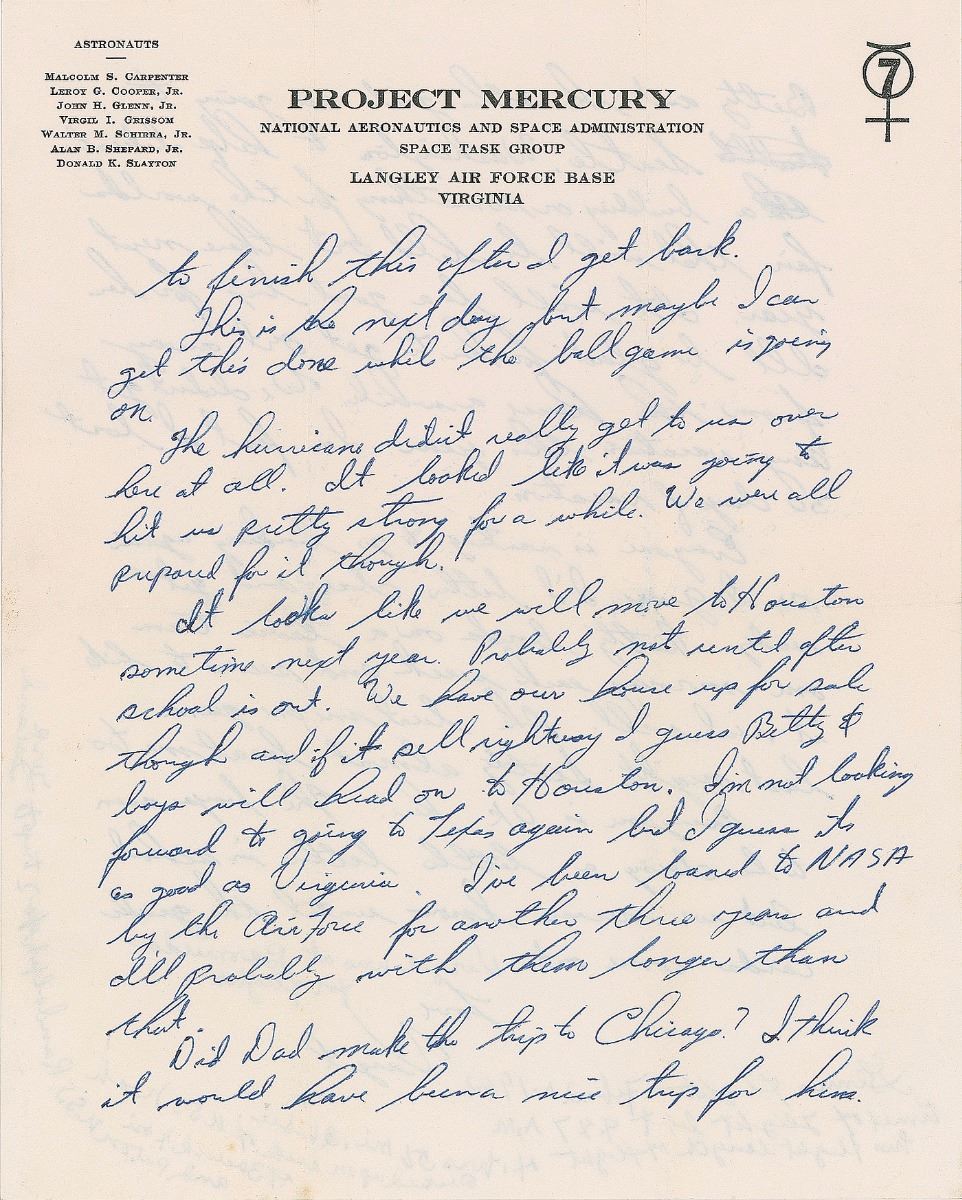 ASTRONAUTS
MALCOLM S. CARPENTER
LEROY G. COOPER, JR.
JOHN H. GLENN, JR.
VIRGIL I. GRISSOM
WALTER M. SCHIRRA, JR.
ALAN B. SHEPARD, JR.
DONALD K. SLAYTON
7
PROJECT MERCURY
NATIONAL AERONAUTICS AND SPACE ADMINISTRATION
SPACE TASK GROUP
LANGLEY AIR FORCE BASE
VIRGINIA
to finish this after I get back.
This is the next day but maybe I can
get this done whil the ballgame is going
on.
The hurricane didn't really get to us over
here at all. It looked like it was going to
hit us pretty strong for a while. We were all
prepared for it though.
It looks like we will move to Houston
sometime next year. Probably not until after
school is out. We have our house up for sale
though and if it sell rightway I guess Betty &
boys will head on to Houston. I'm not looking
forward to going to Texas again but I guess its
as good as Virginia. I've been loaned to NASA
by the Air Force for another three years and
I'll probably with them longer than
that.
Did Dad make the trip to Chicago? I think
it would have been a nice trip for him.